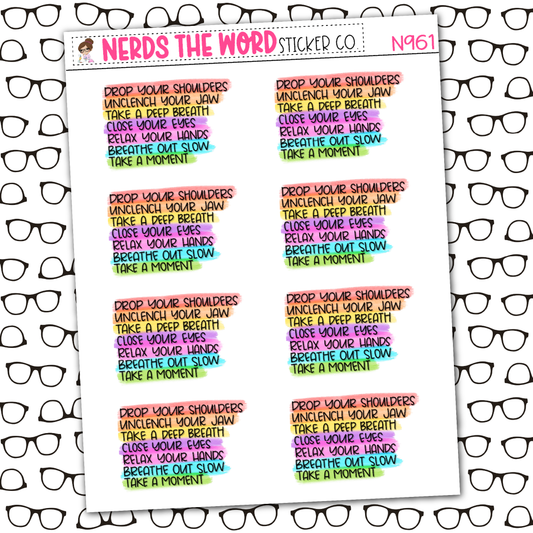 NERDS THE WORD STICKER CO. N961
DROP YOUR SHOULDERS
UNCLENCH YOUR JAW
TAKE A DEEP BREATH
CLOSE YOUR EYES
RELAX YOUR HANDS
BREATHE OUT SLOW
TAKE A MOMENT
DROP YOUR SHOULDERS
UNCLENCH YOUR JAW
TAKE A DEEP BREATH
CLOSE YOUR EYES
RELAX YOUR HANDS
BREATHE OUT SLOW
TAKE A MOMENT
DROP YOUR SHOULDERS
UNCLENCH YOUR JAW
TAKE A DEEP BREATH
CLOSE YOUR EYES
RELAX YOUR HANDS
BREATHE OUT SLOW
TAKE A MOMENT
DROP YOUR SHOULDERS
UNCLENCH YOUR JAW
TAKE A DEEP BREATH
CLOSE YOUR EYES
RELAX YOUR HANDS
BREATHE OUT SLOW
TAKE A MOMENT
DROP YOUR SHOULDERS
UNCLENCH YOUR JAW
TAKE A DEEP BREATH
CLOSE YOUR EYES
RELAX YOUR HANDS
BREATHE OUT SLOW
TAKE A MOMENT
DROP YOUR SHOULDERS
UNCLENCH YOUR JAW
TAKE A DEEP BREATH
CLOSE YOUR EYES
RELAX YOUR HANDS
BREATHE OUT SLOW
TAKE A MOMENT
DROP YOUR SHOULDERS
UNCLENCH YOUR JAW
TAKE A DEEP BREATH
CLOSE YOUR EYES
RELAX YOUR HANDS
BREATHE OUT SLOW
TAKE A MOMENT
DROP YOUR SHOULDERS
UNCLENCH YOUR JAW
TAKE A DEEP BREATH
CLOSE YOUR EYES
RELAX YOUR HANDS
BREATHE OUT SLOW
TAKE A MOMENT